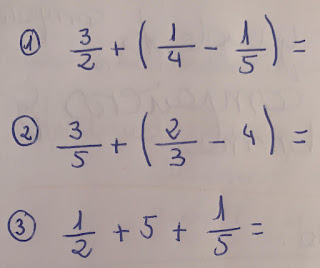 ① 3/2 + (1/4 - 1/5) =
② 3/5 + (2/3 - 4) =
③ 1/2 + 5 + 1/5 =